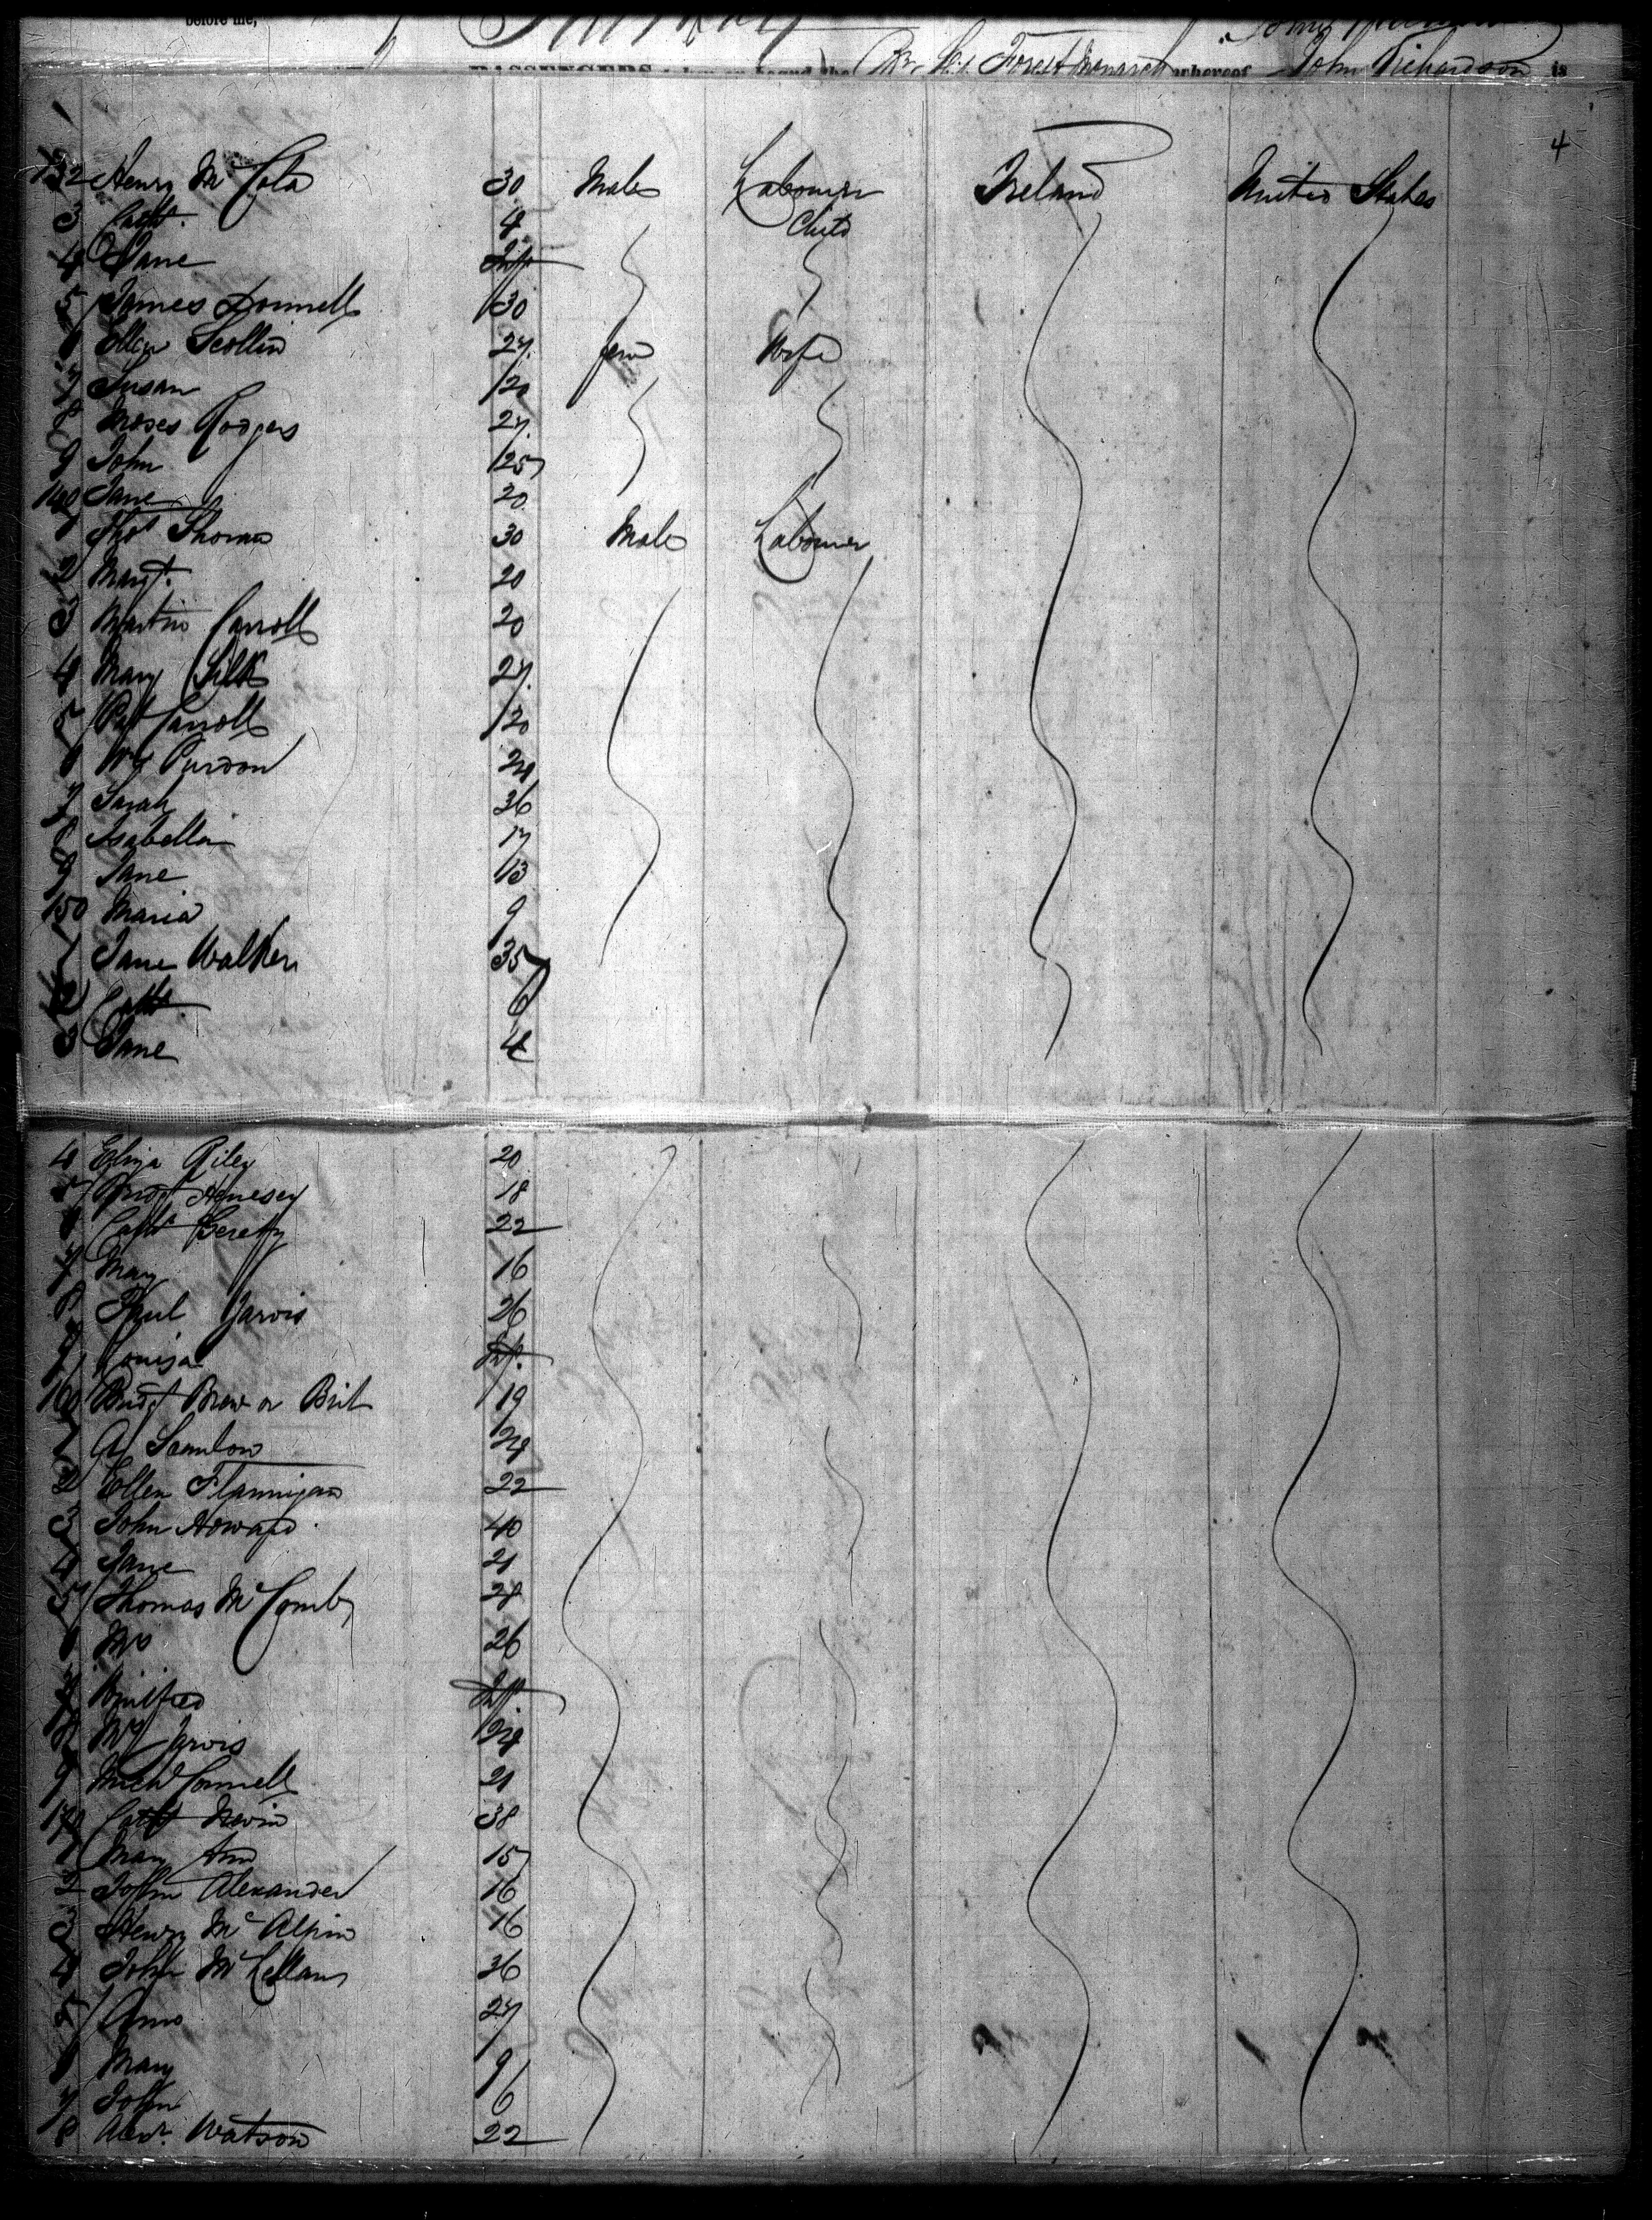 before me,
PASSENGERS taken on board the Br. Ship Forest Monarch whereof John Richardson is
4
132 Henry Mc Cola 30 Male Labourer Ireland United States
3 Cath. 4 Child
4 Jane Inf
5 James Donnell 30
6 Ellen Scollin 27 fem Wife
7 Susan 20
8 Moses Rodgers 27
9 John 25
140 Jane 20
1 Thos Thomas 30 Male Labourer
2 Margt. 20
3 Martin Carroll 20
4 Mary Silk 27
5 Pat Carroll 20
6 Wm Purdon 24
7 Sarah 36
8 Isabella 17
9 Jane 13
150 Maria 9
1 Jane Walker 35
2 Cath. 6
3 Jane 4
4 Eliza Riley 20
5 Bridgt Henesey 18
6 Cath Gerety 22
7 Mary 16
8 Paul Jarvis 26
9 Louisa Inf.
160 Bridgt Brew or Brit 19
1 Scanlon 24
2 Ellen Flannigan 22
3 John Howard 40
4 Jane 21
5 Thomas McComb 28
6 Mrs 26
7 Winifred Inf
8 Wm Jarvis 24
9 Michl Connell 21
170 Cath Nevin 38
1 Mary Ann 15
2 John Alexander 16
3 Henry McAlpin 16
4 John McClellan 36
5 Ann 27
6 Mary 9
7 John 6
8 Alexr. Watson 22